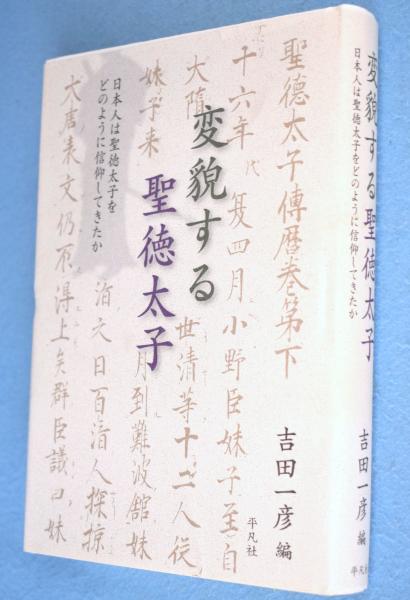 変貌する
聖徳太子
日本人は聖徳太子を
どのように信仰してきたか
吉田一彦 編
平凡社
聖德太子傳暦巻第下
十六年 夏四月小野臣妹子至自
大隋
世清等十二人従
妹子来
月到難波舘妹
文日百済人探掠
表文仍不得上矣群臣議曰妹
変貌する聖徳太子
日本人は聖徳太子をどのように信仰してきたか
吉田一彦 編
平凡社